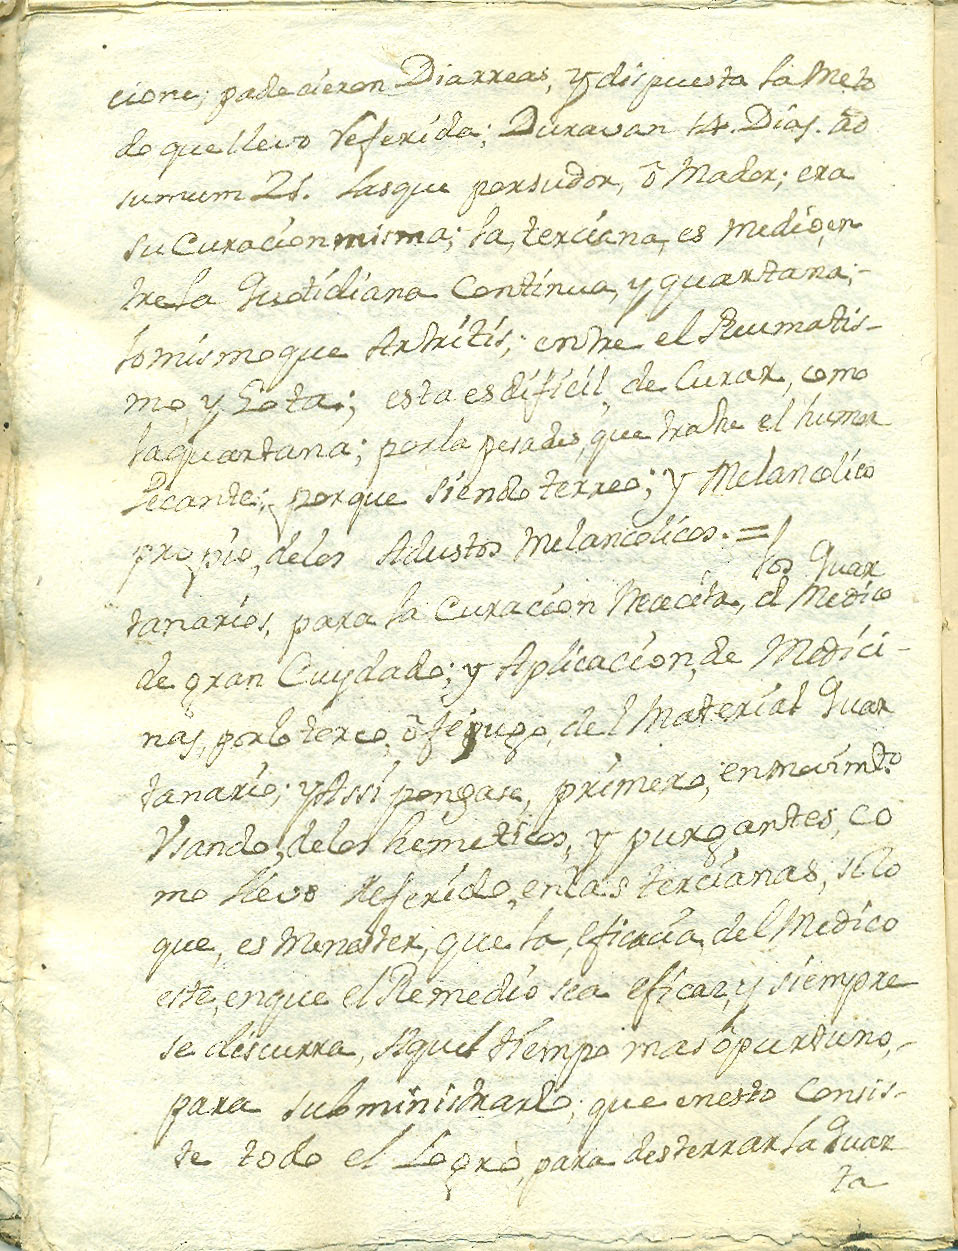 cione; padecieron Diarreas, y dispuesta la Meto
do que llevo referida; Duravan 14. Dias. ad
sumum 21. las que por sudor, ô Mador; era
su Curacion misma; la terciana, es medio, en
tre la Quotidiana Continua, y quartana;-
lo mismo que Artritis; entre el Reumatis-
mo, y Gota; esta es dificil de Curar, como
la quartana; por la pesades, que trahe el humor
Pecante; porque siendo terreo; y Melancolico
propio, de los Adustos Melancolicos. =
los Quar
tanarios, para la Curacion Nececita, el Medico
de gran Cuydado; y Aplicacion, de Medici-
nas, por lo terco, ô del Material Quar
tanario; y Assi pongase, primero, en movimto.
Usando, de los hemeticos, y purgantes, co
mo llevo Referido, en las tercianas, solo
que, es Menester, que la, eficacia, del Medico
este, en que el Remedio sea eficaz, y siempre
se discurra, Aquel tiempo mas ôpurtuno,-
para subministrarlo; que en esto Consis-
te todo el Logro, para desterrar la Quar
ta